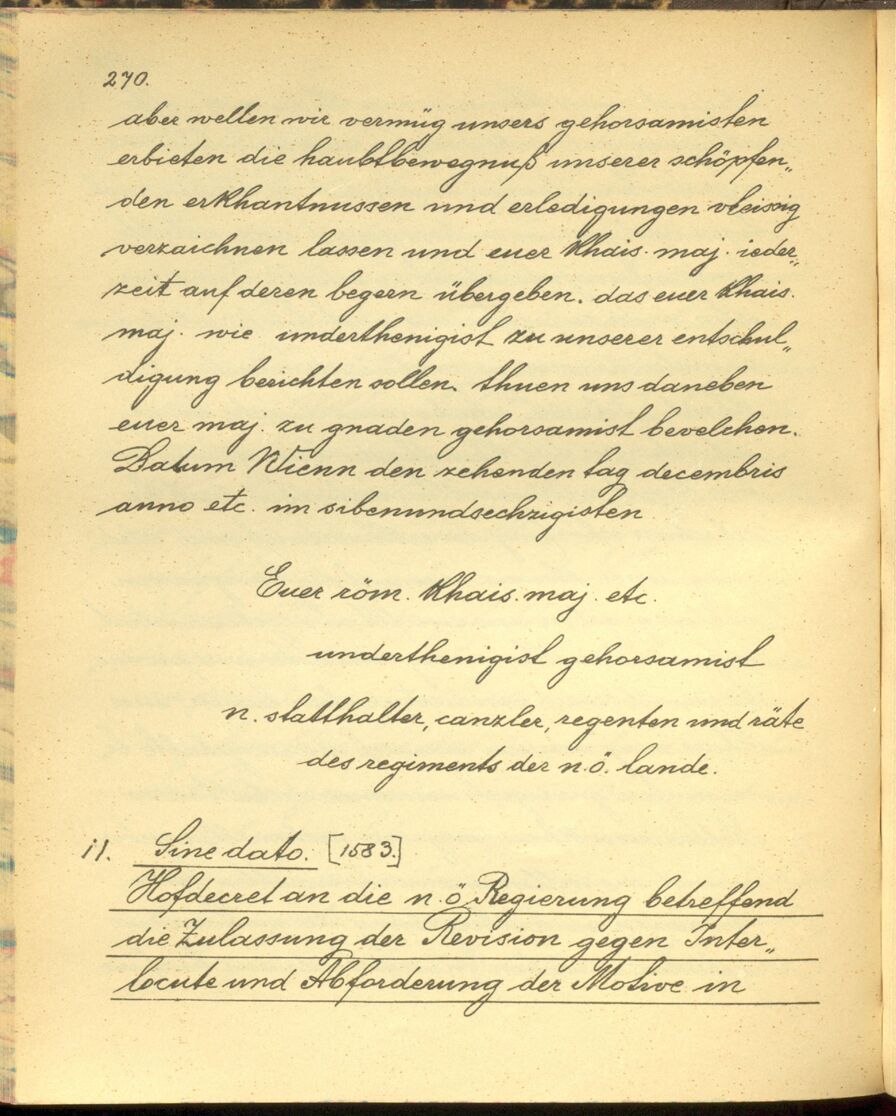 270.
aber wellen wir vermüg unsers gehorsamisten
erbieten die haubtbewegnuß unserer schöpfen„
den erkhantnussen und erledigungen vleissig
verzaichnen lassen und euer khais. maj. ieder„
zeit auf deren begern übergeben. das euer khais.
maj. wie underthenigist zu unserer entschul„
digung berichten sollen. thuen uns daneben
euer maj. zu gnaden gehorsamist bevelchen.
Datum Wienn den zehenden tag decembris
anno etc. im sibenundsechzigisten
Euer röm. khais. maj. etc.
underthenigist gehorsamist
n. statthalter, canzler, regenten und räte
des regiments der n.ö. lande.
11. Sine dato. [1583.]
Hofdecret an die n.ö. Regierung betreffend
die Zulassung der Revision gegen Inter„
locute und Abforderung der Motive in